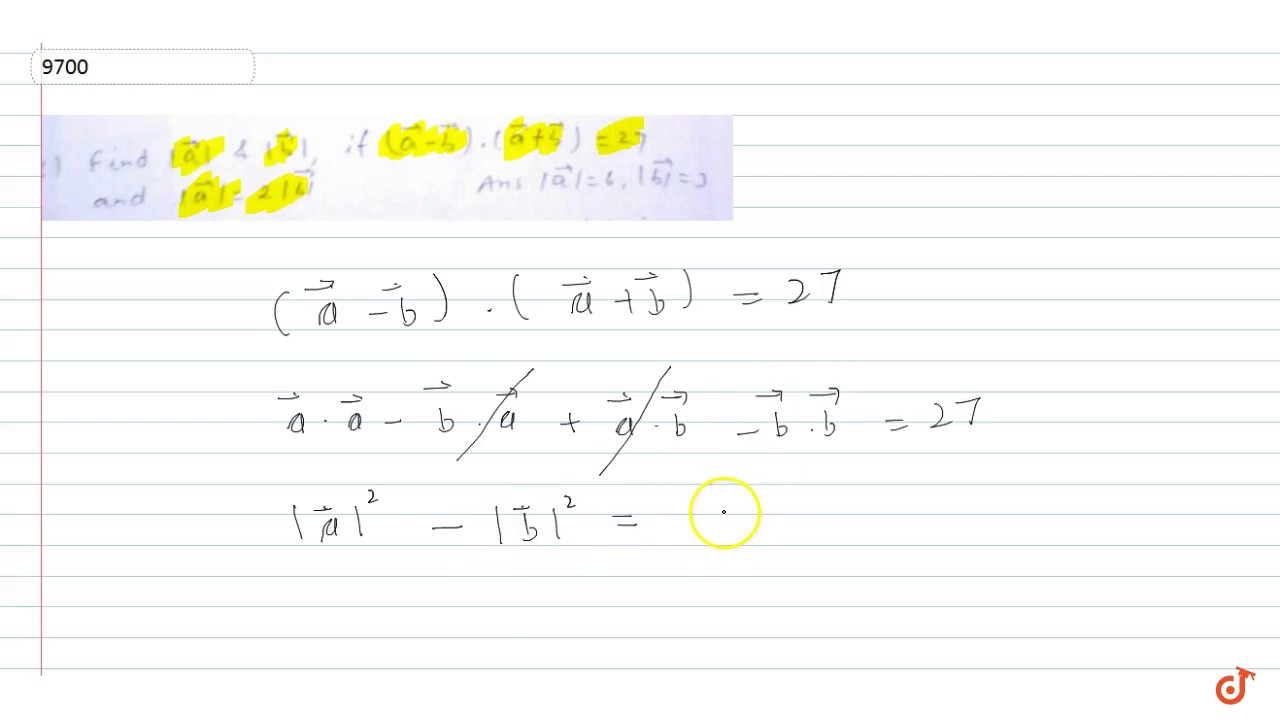 9700
Find |a⃗| & |b⃗|, if (a⃗-b⃗).(a⃗+b⃗) = 27
and |a⃗| = 2|b⃗| Ans |a⃗|=6, |b⃗|=3
(a⃗ - b⃗) . (a⃗ + b⃗) = 27
a⃗ . a⃗ - b⃗ . a⃗ + a⃗ . b⃗ - b⃗ . b⃗ = 27
|a⃗|² - |b⃗|² =